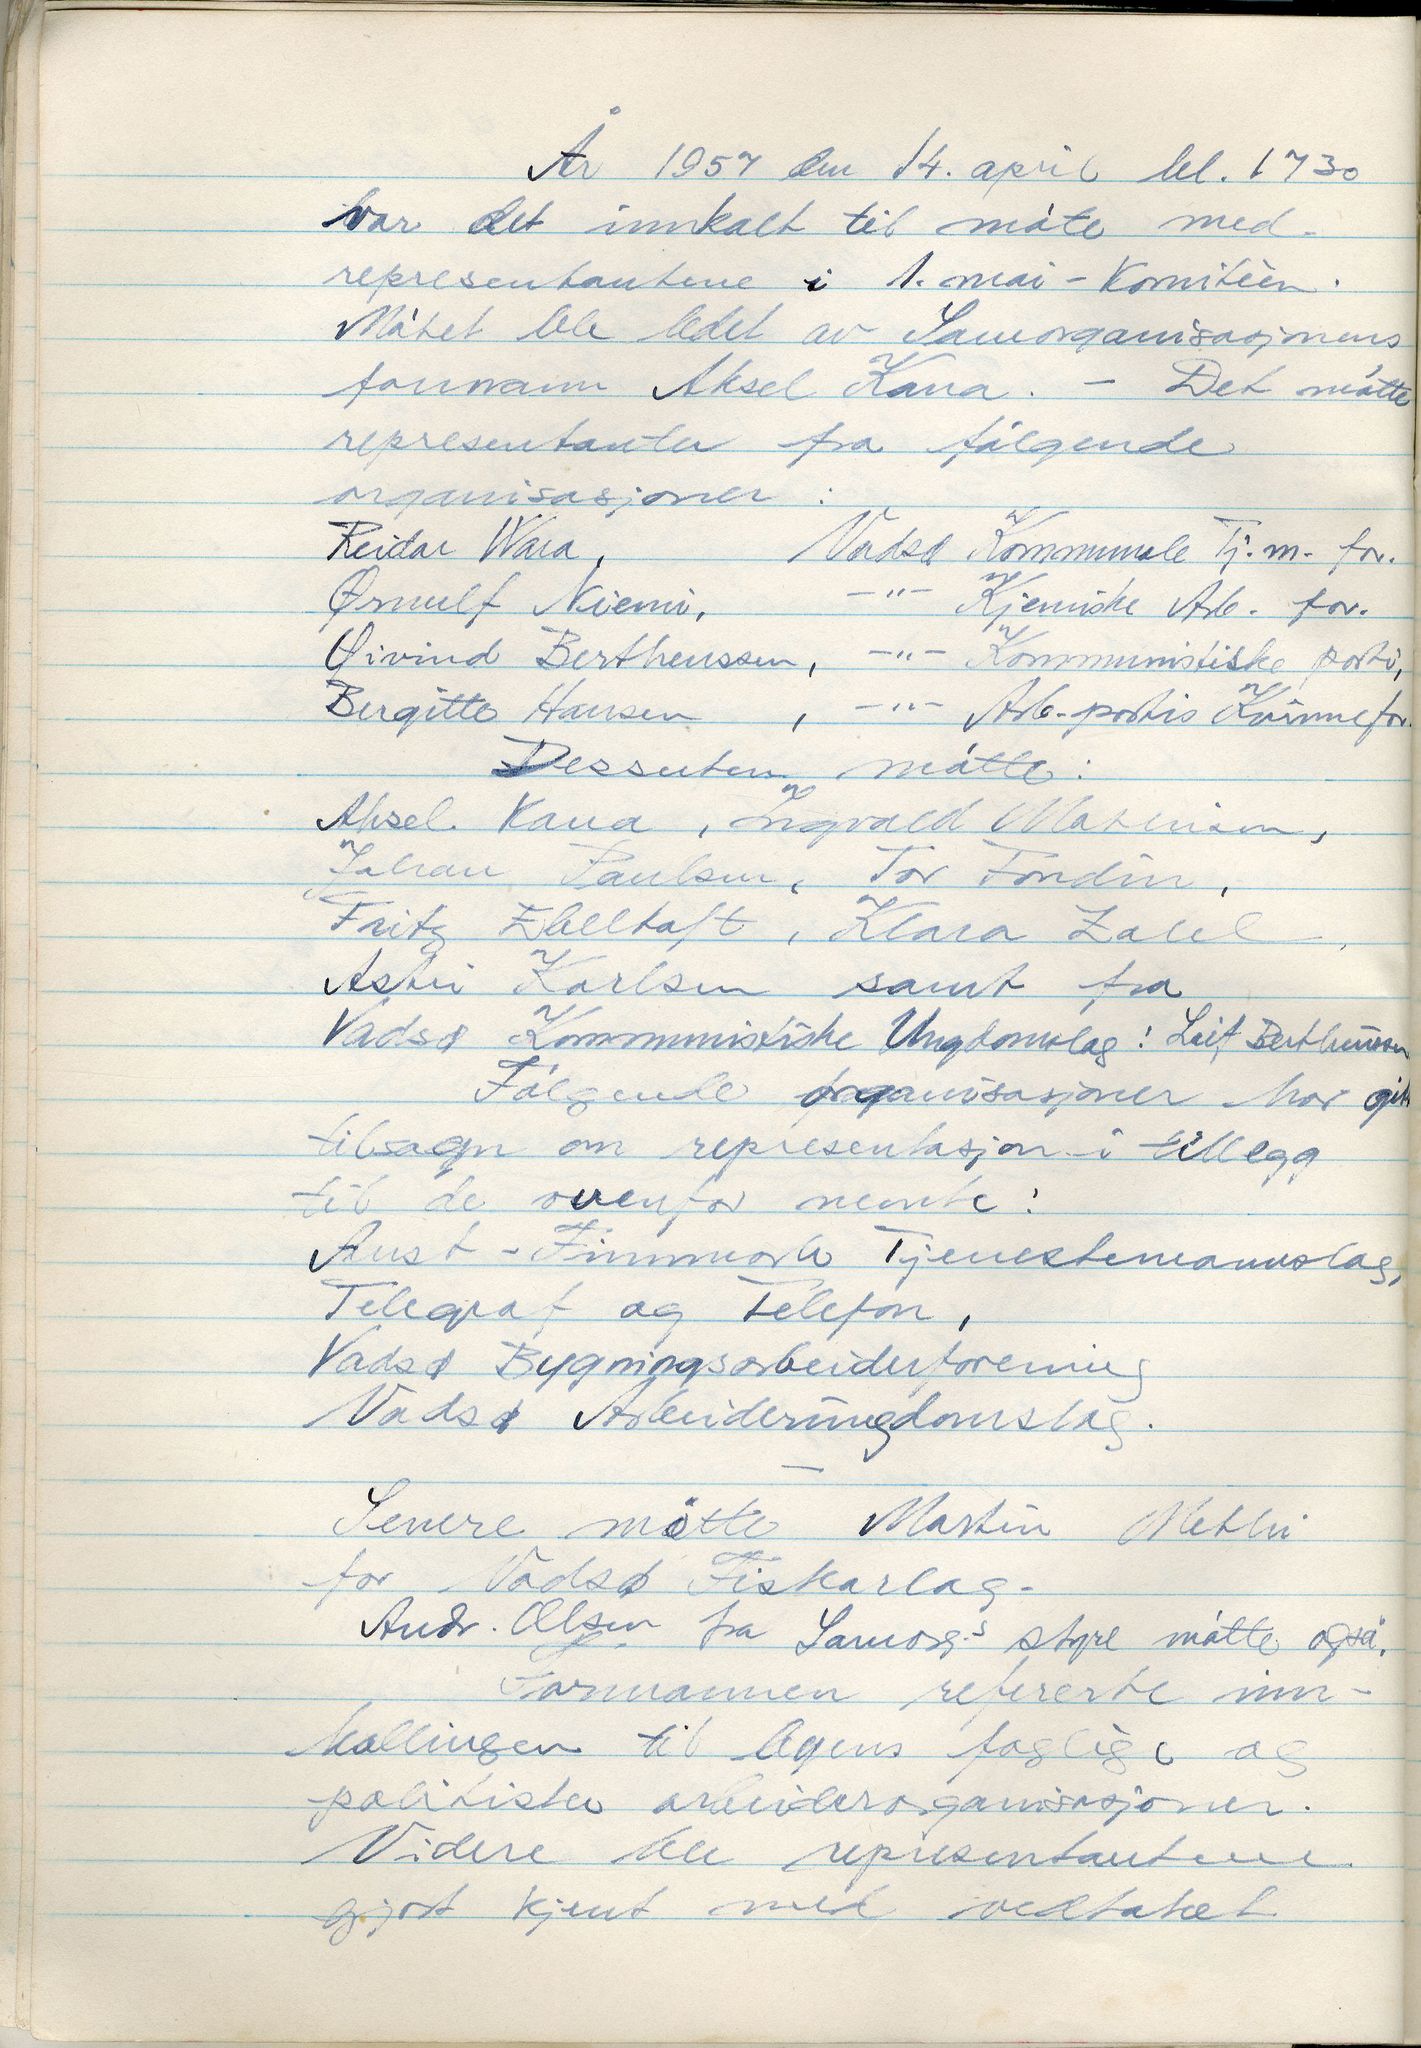 År 1957 den 14. april kl. 1730
var det innkalt til møte med
representantene i 1. mai-komitéen.
Møtet ble ledet av Samorganisasjonens
formann Aksel Kana. - Det møtte
representanter fra følgende
organisasjoner:
Reidar Wara, Vadsø Kommunale Tj.m.for.
Ørnulf Niemi, -"- Kjemiske Arb. for.
Øivind Berthenssen, -"- Kommunistiske parti,
Bergitte Hansen, -"- Arb.partis Kvinnefor.
Dessuten møtte:
Aksel Kana, Ingvald Mathisen,
Johan Paulsen, Tor Fondin,
Fritz Ebeltoft, Klara Zahl,
Astri Karlsen samt fra
Vadsø Kommunistiske Ungdomslag: Leif Berthenssen
Følgende organisasjoner har gitt
tilsagn om representasjon i tillegg
til de ovenfor nemte:
Aust-Finnmark Tjenestemannslag,
Telegraf og Telefon,
Vadsø Bygningsarbeiderforening
Vadsø Arbeiderungdomslag.
-
Senere møtte Martin Methi
for Vadsø Fiskarlag.
Andr. Olsen fra Samorg.s styre møtte også.
Formannen refererte inn-
kallingen til byens faglige og
politiske arbeiderorganisasjoner.
Videre ble representantene
gjort kjent med vedtaket